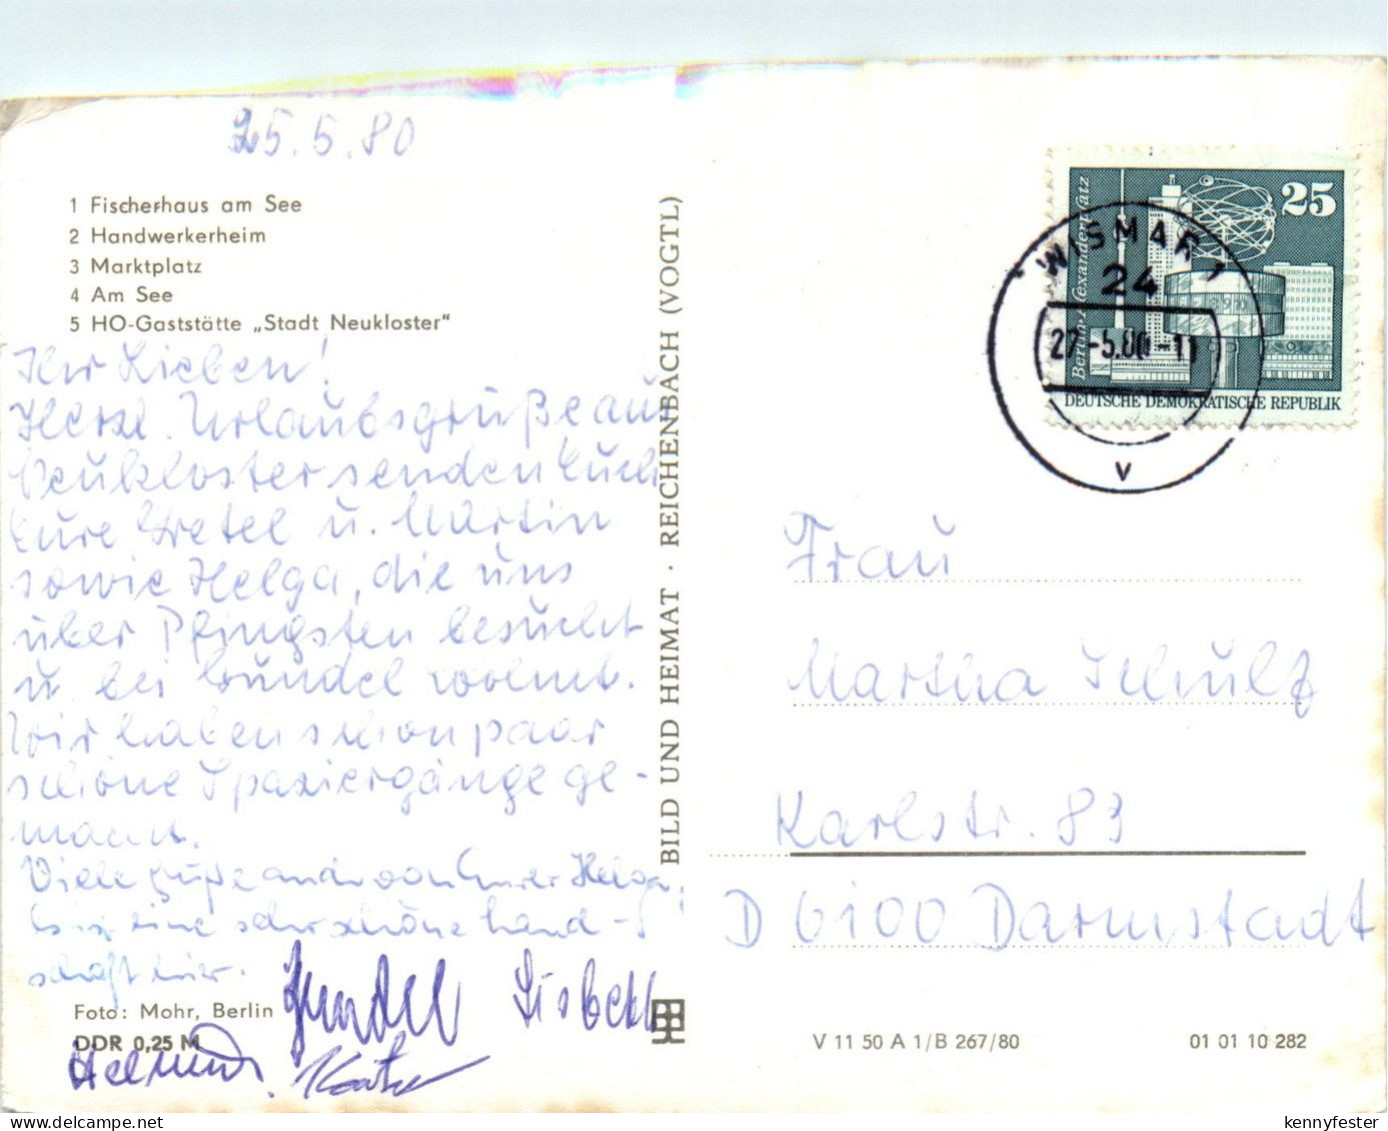 25.5.80
1 Fischerhaus am See
2 Handwerkerheim
3 Marktplatz
4 Am See
5 HO-Gaststätte „Stadt Neukloster“
Ihr Lieben!
Herzl. Urlaubsgrüße aus
Neukloster senden Euch
Eure Gretel u. Martin
sowie Helga, die uns
über Pfingsten besucht
u. bei Gundel wohnt.
Wir haben schon paar
schöne Spaziergänge ge-
macht.
Viele Grüße auch von Eurer Helga,
Es ist eine sehr schöne Land-
schaft hier.
Gundel Lisbeth
Helmut. Käthe
Foto: Mohr, Berlin
DDR 0,25 M
BILD UND HEIMAT · REICHENBACH (VOGTL)
25
Berlin-Alexanderplatz
DEUTSCHE DEMOKRATISCHE REPUBLIK
WISMAR 1
24
27.-5.80-11
v
Frau
Martha Schulz
Karlstr. 83
D 6100 Darmstadt
V 11 50 A 1/B 267/80
01 01 10 282
delcampe.net
kennyfester